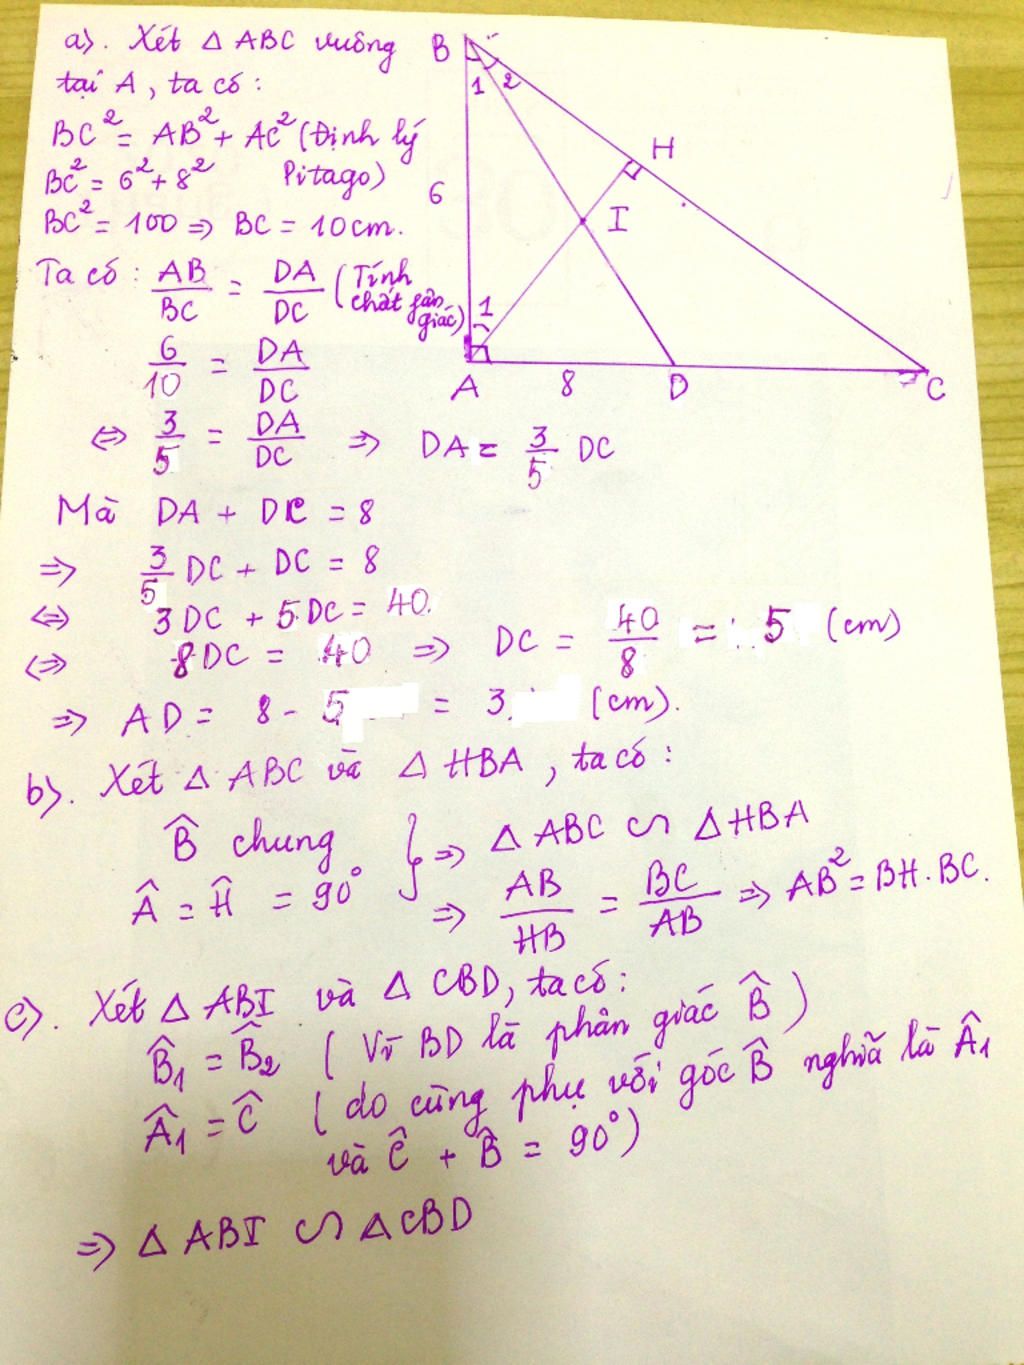 a). Xét Δ ABC vuông
tại A, ta có:
BC² = AB² + AC² (Định lý
Pitago)
BC² = 6² + 8²
BC² = 100 => BC = 10cm.
Ta có: AB/BC = DA/DC (Tính
chất phân
giác)
6/10 = DA/DC
<=> 3/5 = DA/DC => DA = 3/5 DC
Mà DA + DC = 8
=> 3/5 DC + DC = 8
<=> 3DC + 5DC = 40.
<=> 8DC = 40 => DC = 40/8 = 5 (cm)
=> AD = 8 - 5 = 3 (cm).
b). Xét Δ ABC và Δ HBA, ta có:
B̂ chung
Â = Ĥ = 90°
} => Δ ABC ∽ Δ HBA
=> AB/HB = BC/AB => AB² = BH.BC.
c). Xét Δ ABI và Δ CBD, ta có:
B̂1 = B̂2 (Vì BD là phân giác B̂)
Â1 = Ĉ (do cùng phụ với góc B̂ nghĩa là Â1
và Ĉ + B̂ = 90°)
=> Δ ABI ∽ Δ CBD
B
1 2
H
6
I
1
A 8 D C